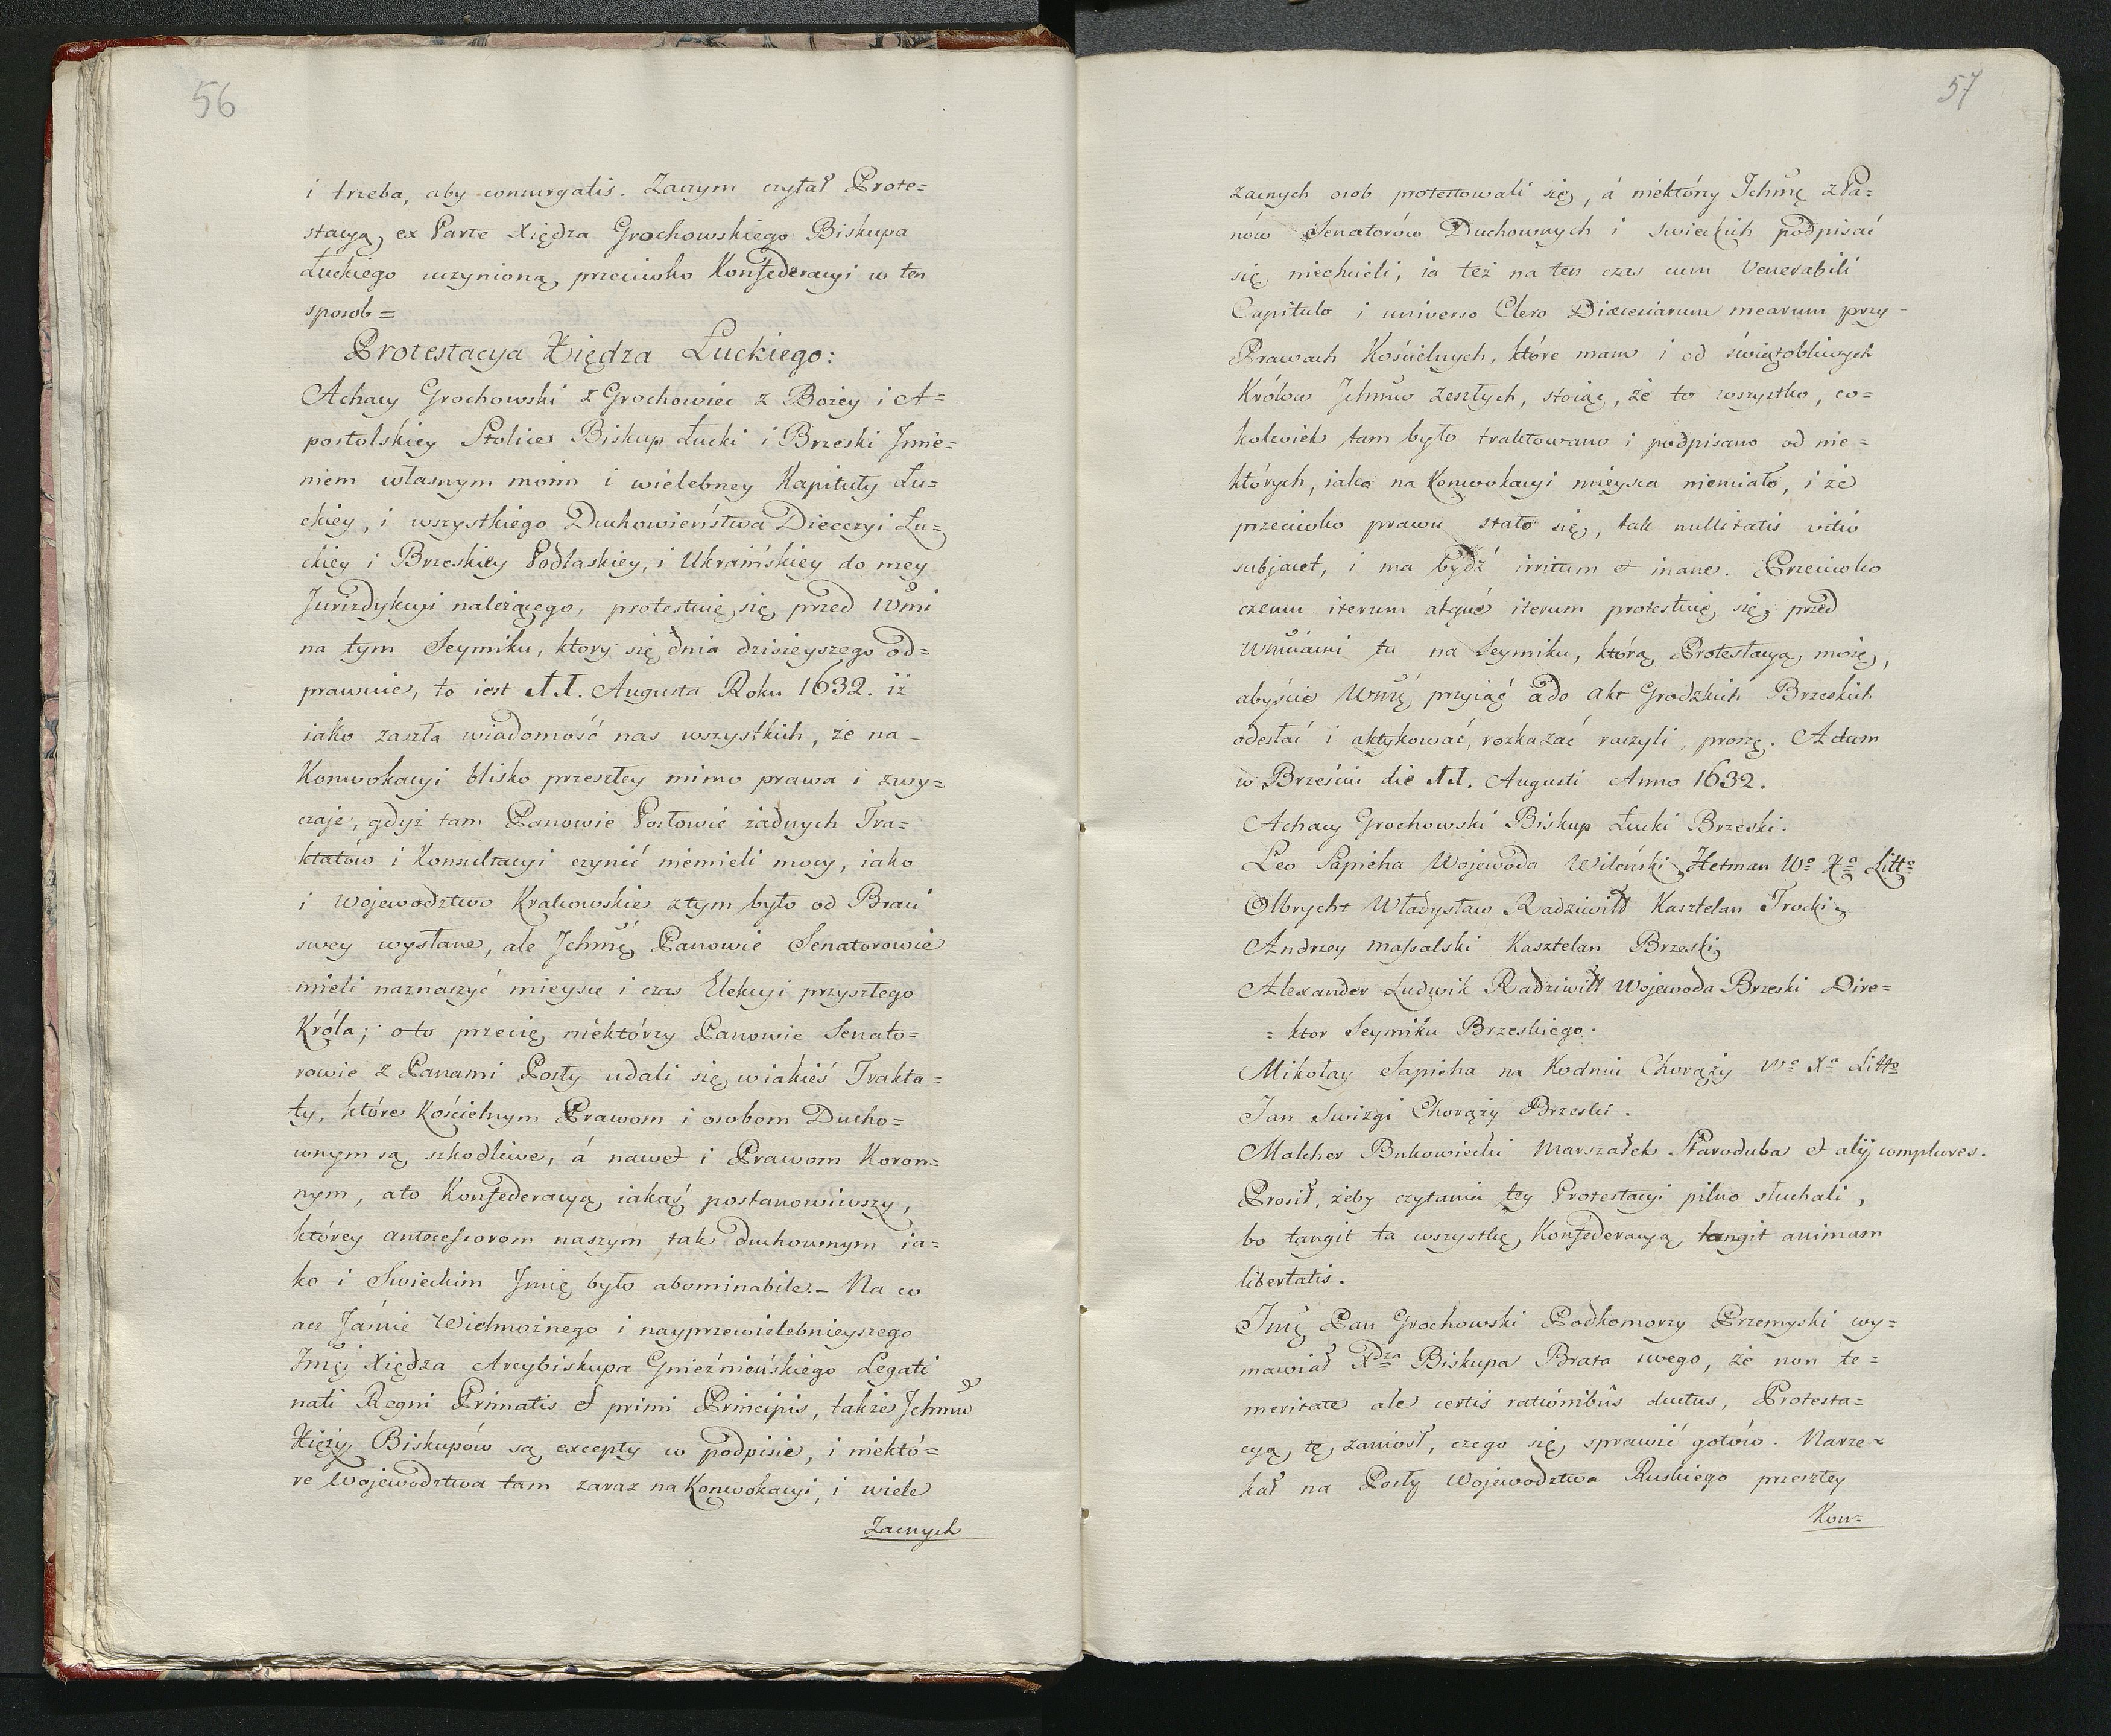 56
i trzeba, aby consurgatis. Zaczym czytał Prote=
stacyą, ex Parte Xiędza Grochowskiego Biskupa
Łuckiego uczynioną, przeciwko Konfederacyi w ten
sposob =
Protestacya Xiędza Łuckiego:
Achacy Grochowski z Grochowiec z Bożey i A=
postolskiey Stolice Biskup Łucki i Brzeski Jmie=
niem własnym moim i wielebney Kapituły Łu=
ckiey, i wszystkiego Duchowieństwa Diecezyi Łu=
ckiey i Brzeskiey Podlaskiey, i Ukraińskiey do mey
Jurizdykcyi należącego, protestuię się, przed Wmi
na tym Seymiku, ktory się dnia dzisieyszego od=
prawuie, to iest 11. Augusta Roku 1632. iż
iako zaszła wiadomość nas wszystkich, że na -
Konwokacyi blisko przeszłey mimo prawa i zwy=
czaje, gdyż tam Panowie Posłowie żadnych Tra=
ktatów i Konsultacyi czynić niemieli mocy, iako
i Wojewodztwo Krakowskie z tym było od Braci
swey wysłane, ale Jchmę Panowie Senatorowie
mieli naznaczyć mieysce i czas Elekcyi przyszłego
Króla; oto przecię niektórzy Panowie Senato=
rowie z Panami Posły udali się w iakieś Trakta=
ty, które Kościelnym Prawom i osobom Ducho=
wnym są szkodliwe, á nawet i Prawom Koron=
nym, a to Konfederacyą iakąś postanowiwszy,
którey antecessorom naszym tak duchownym ia=
ko i Swieckim Jmię było abominabile. - Na co
acz Jaśnie Wielmożnego i nayprzewielebnieyszego
Jmęi Xiędza Arcybiskupa Gnieźnieńskiego Legati
nati Regni Primatis et primi Principis, także Jchmw
Xięży Biskupów są excepty w podpisie, i niektó=
re Wojewodztwa tam zaraz na Konwokacyi, i wiele
Zacnych
57
zacnych osob protestowali się, á niektórzy Jchmę z Pa=
nów Senatorów Duchownych i swieckich podpisać
się niechcieli, ia też na ten czas cum Venerabili
Capitulo i universo Clero Diaecesiarum mearum przy -
Prawach Kościelnych, które mam i od świątobliwych
Królow Jchmw zeszłych, stoiąc, że to wszystko, co=
kolwiek tam było traktowano i podpisano od nie=
których, iako na Konwokacyi mieysca niemiało, i że
przeciwko prawu stało się, tak nullitatis vitio
subjacet, i ma bydź irritum et inane. Przeciwko
czemu iterum atque iterum protestuię się, przed
Wmciami tu na Seymiku, którą Protestacyą moię,
abyście Wmć przyiąć a do Akt Grodzkich Brzeskich
odesłać i aktykować, rozkazać raczyli, proszę. Actum
w Brześciu die 11. Augusti Anno 1632.
Achacy Grochowski Biskup Łucki Brzeski.
Leo Sapieha Wojewoda Wileński Hetman Wo Xa Litto
Olbrycht Władysław Radziwiłł Kasztelan Trocki
Andrzey Massalski Kasztelan Brzeski
Alexander Ludwik Radziwiłł Wojewoda Brzeski Dire=
= ktor Seymiku Brzeskiego.
Mikołay Sapieha na Kodniu Chorąży Wo Xa Litto
Jan Swizgi Chorąży Brzeski.
Malcher Bukowiecki Marszałek Staroduba et alij complures.
Prosił, żeby czytania tey Protestacyi pilno słuchali,
bo tangit ta wszystkię Konfederacyą tangit animam
libertatis.
Jmę Pan Grochowski Podkomorzy Przemyski wy=
mawiał Xdza Biskupa Brata swego, że non te=
meritate ale certis rationibus ductus, Protesta=
cyą, tę, zaniosł, czego się, sprawić gotów. Narze=
kał na Posły Wojewodztwa Ruskiego przeszłey
Kon=